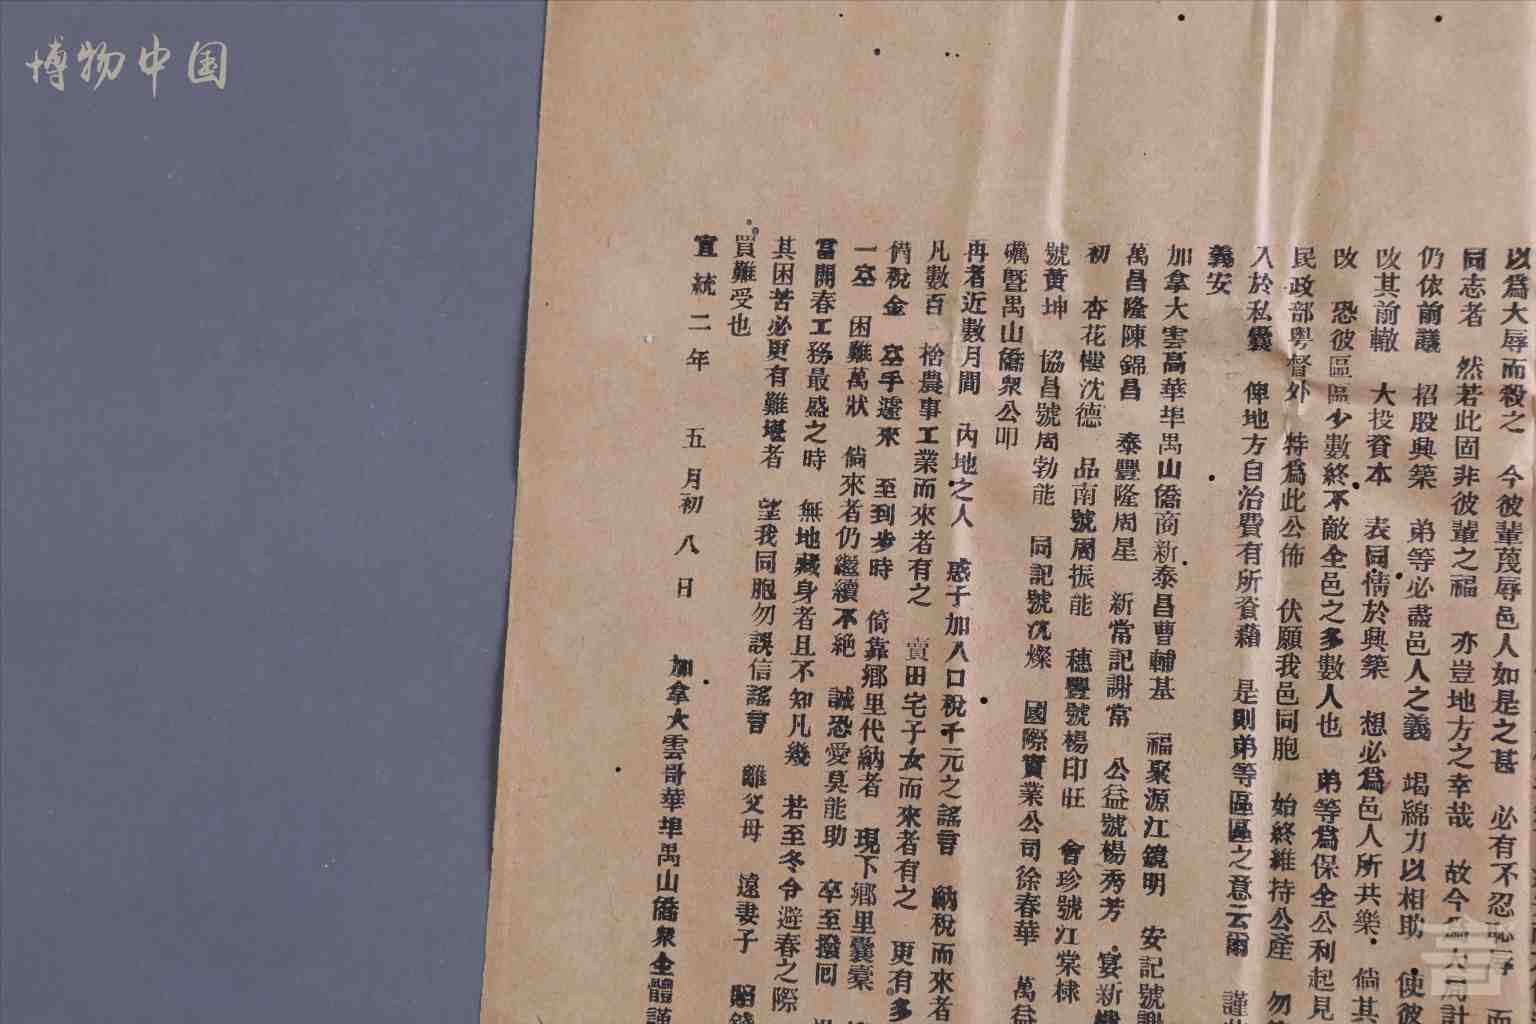 博物中国
以爲大辱而殺之　今彼輩蔑辱邑人如是之甚　必有不忍恥辱　而
同志者　然若此固非彼輩之福　亦豈地方之幸哉　故今
仍依前議　招股興築　弟等必盡邑人之義　竭綿力以相助　使彼
改其前轍　大投資本　表同情於興築　想必爲邑人所共樂　倘其
改　恐彼區區少數終不敵全邑之多數人也　弟等爲保全公利起見
民政部粤督外　特爲此公佈　伏願我邑同胞　始終維持公產　勿
入於私囊　俾地方自治費有所資藉　是則弟等區區之意云爾　謹
義安
加拿大雲高華埠禺山僑商新泰昌曹輔基　福聚源江鏡明　安記號
萬昌隆陳錦昌　泰豐隆周星　新常記謝常　公益號楊秀芳　宴新
初　杏花樓沈德　品南號周振能　穗豐號楊印旺　會珍號江棠棣
號黃坤　協昌號周勃能　同記號沈燦　國際實業公司徐春華　萬益
礪暨禺山僑衆公叩
再者近數月間　內地之人　惑于加入口稅千元之謠言　納稅而來者
凡數百　捨農事工業而來者有之　賣田宅子女而來者有之　更有多
備稅金　空手遽來　至到步時　倚靠鄉里代納者　現下鄉里囊橐
一空　困難萬狀　倘來者仍繼續不絕　誠恐愛莫能助　卒至撥回
當開春工務最盛之時　無地藏身者且不知凡幾　若至冬令避春之際
其困苦必更有難堪者　望我同胞勿誤信謠言　離父母　遠妻子　賠錢
買難受也
宣統二年　五月初八日　加拿大雲哥華埠禺山僑衆全體謹